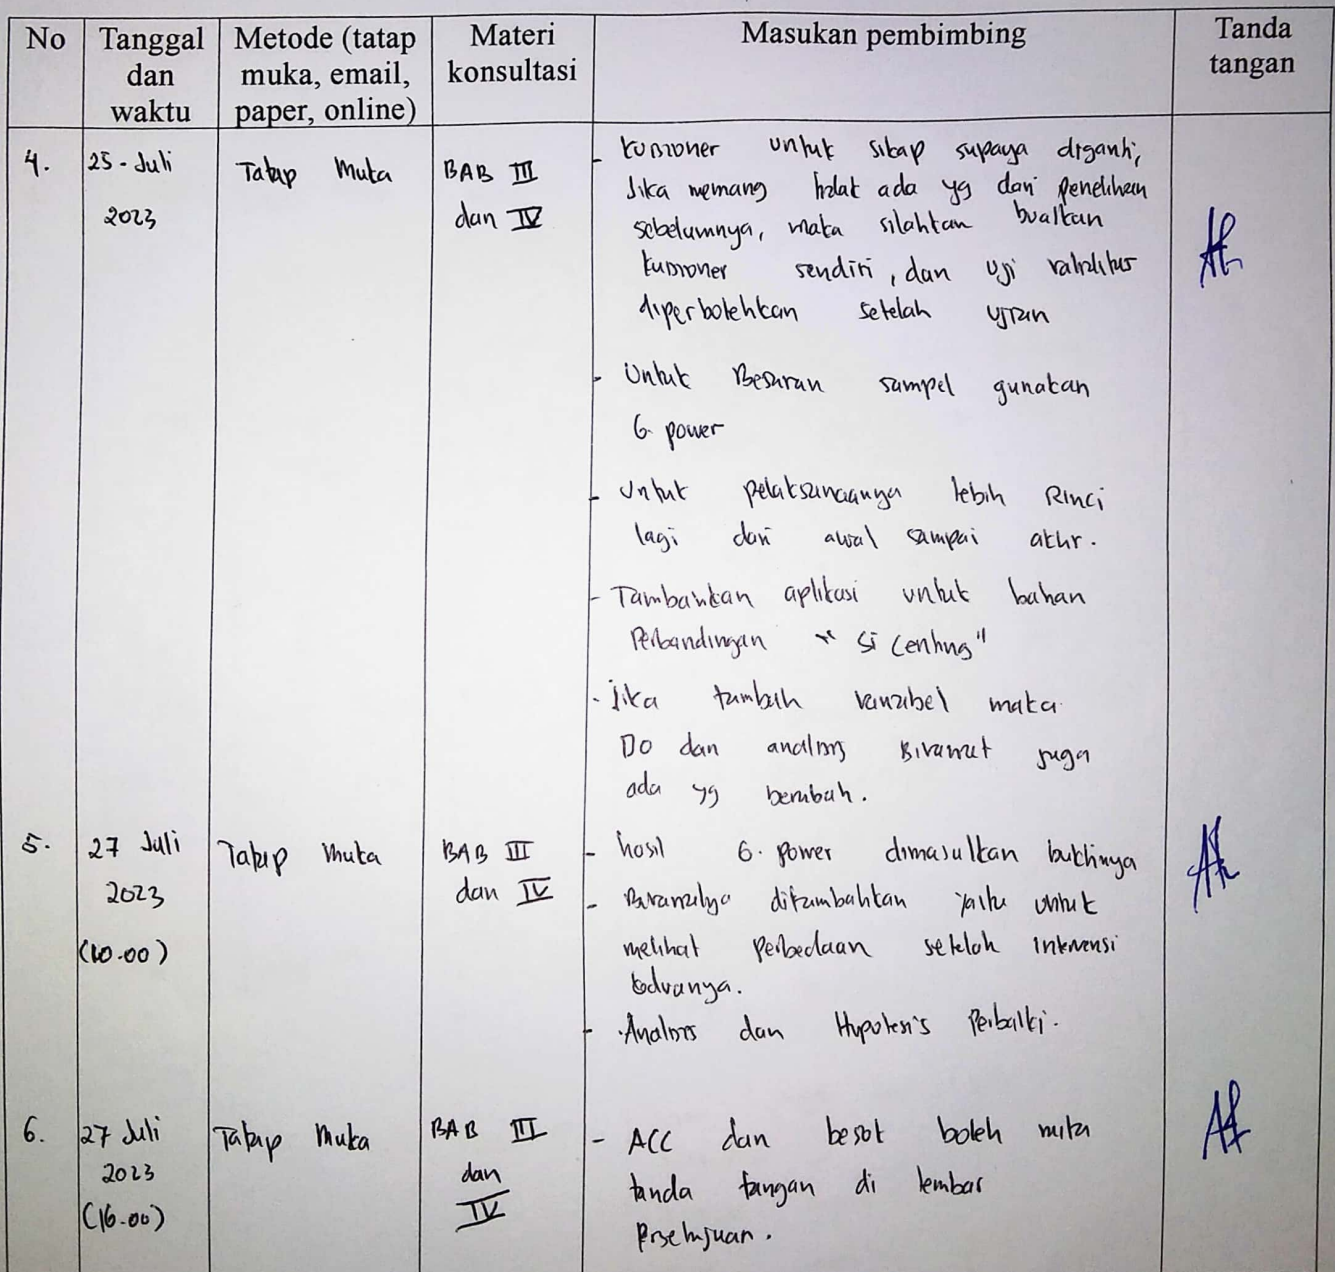 No
Tanggal dan waktu
Metode (tatap muka, email, paper, online)
Materi konsultasi
Masukan pembimbing
Tanda tangan
4.
25 - Juli
2023
Tatap Muka
BAB III
dan IV
- kuisioner untuk sikap supaya diganti,
Jika memang tidak ada yg dari penelitian
sebelumnya, maka silahkan buatkan
kuisioner sendiri, dan uji validitas
diperbolehkan setelah ujian
- Untuk Besaran sampel gunakan
G. power
- Untuk pelaksanaanya lebih Rinci
lagi dari awal sampai akhr.
- Tambahkan aplikasi untuk bahan
Perbandingan " Si Centing"
- Jika tambah variabel maka
DO dan analisis Bivariat juga
ada yg berubah.
5.
27 Juli
2023
(10.00)
Tatap Muka
BAB III
dan IV
- hasil G. power dimasukkan buktinya
- Bivariatnya ditambahkan yaitu untuk
melihat perbedaan setelah intervensi
keduanya.
- Analisis dan Hypotesis Perbaiki.
6.
27 Juli
2023
(16.00)
Tatap Muka
BAB III
dan
IV
- ACC dan besok boleh minta
tanda tangan di lembar
Persetujuan.